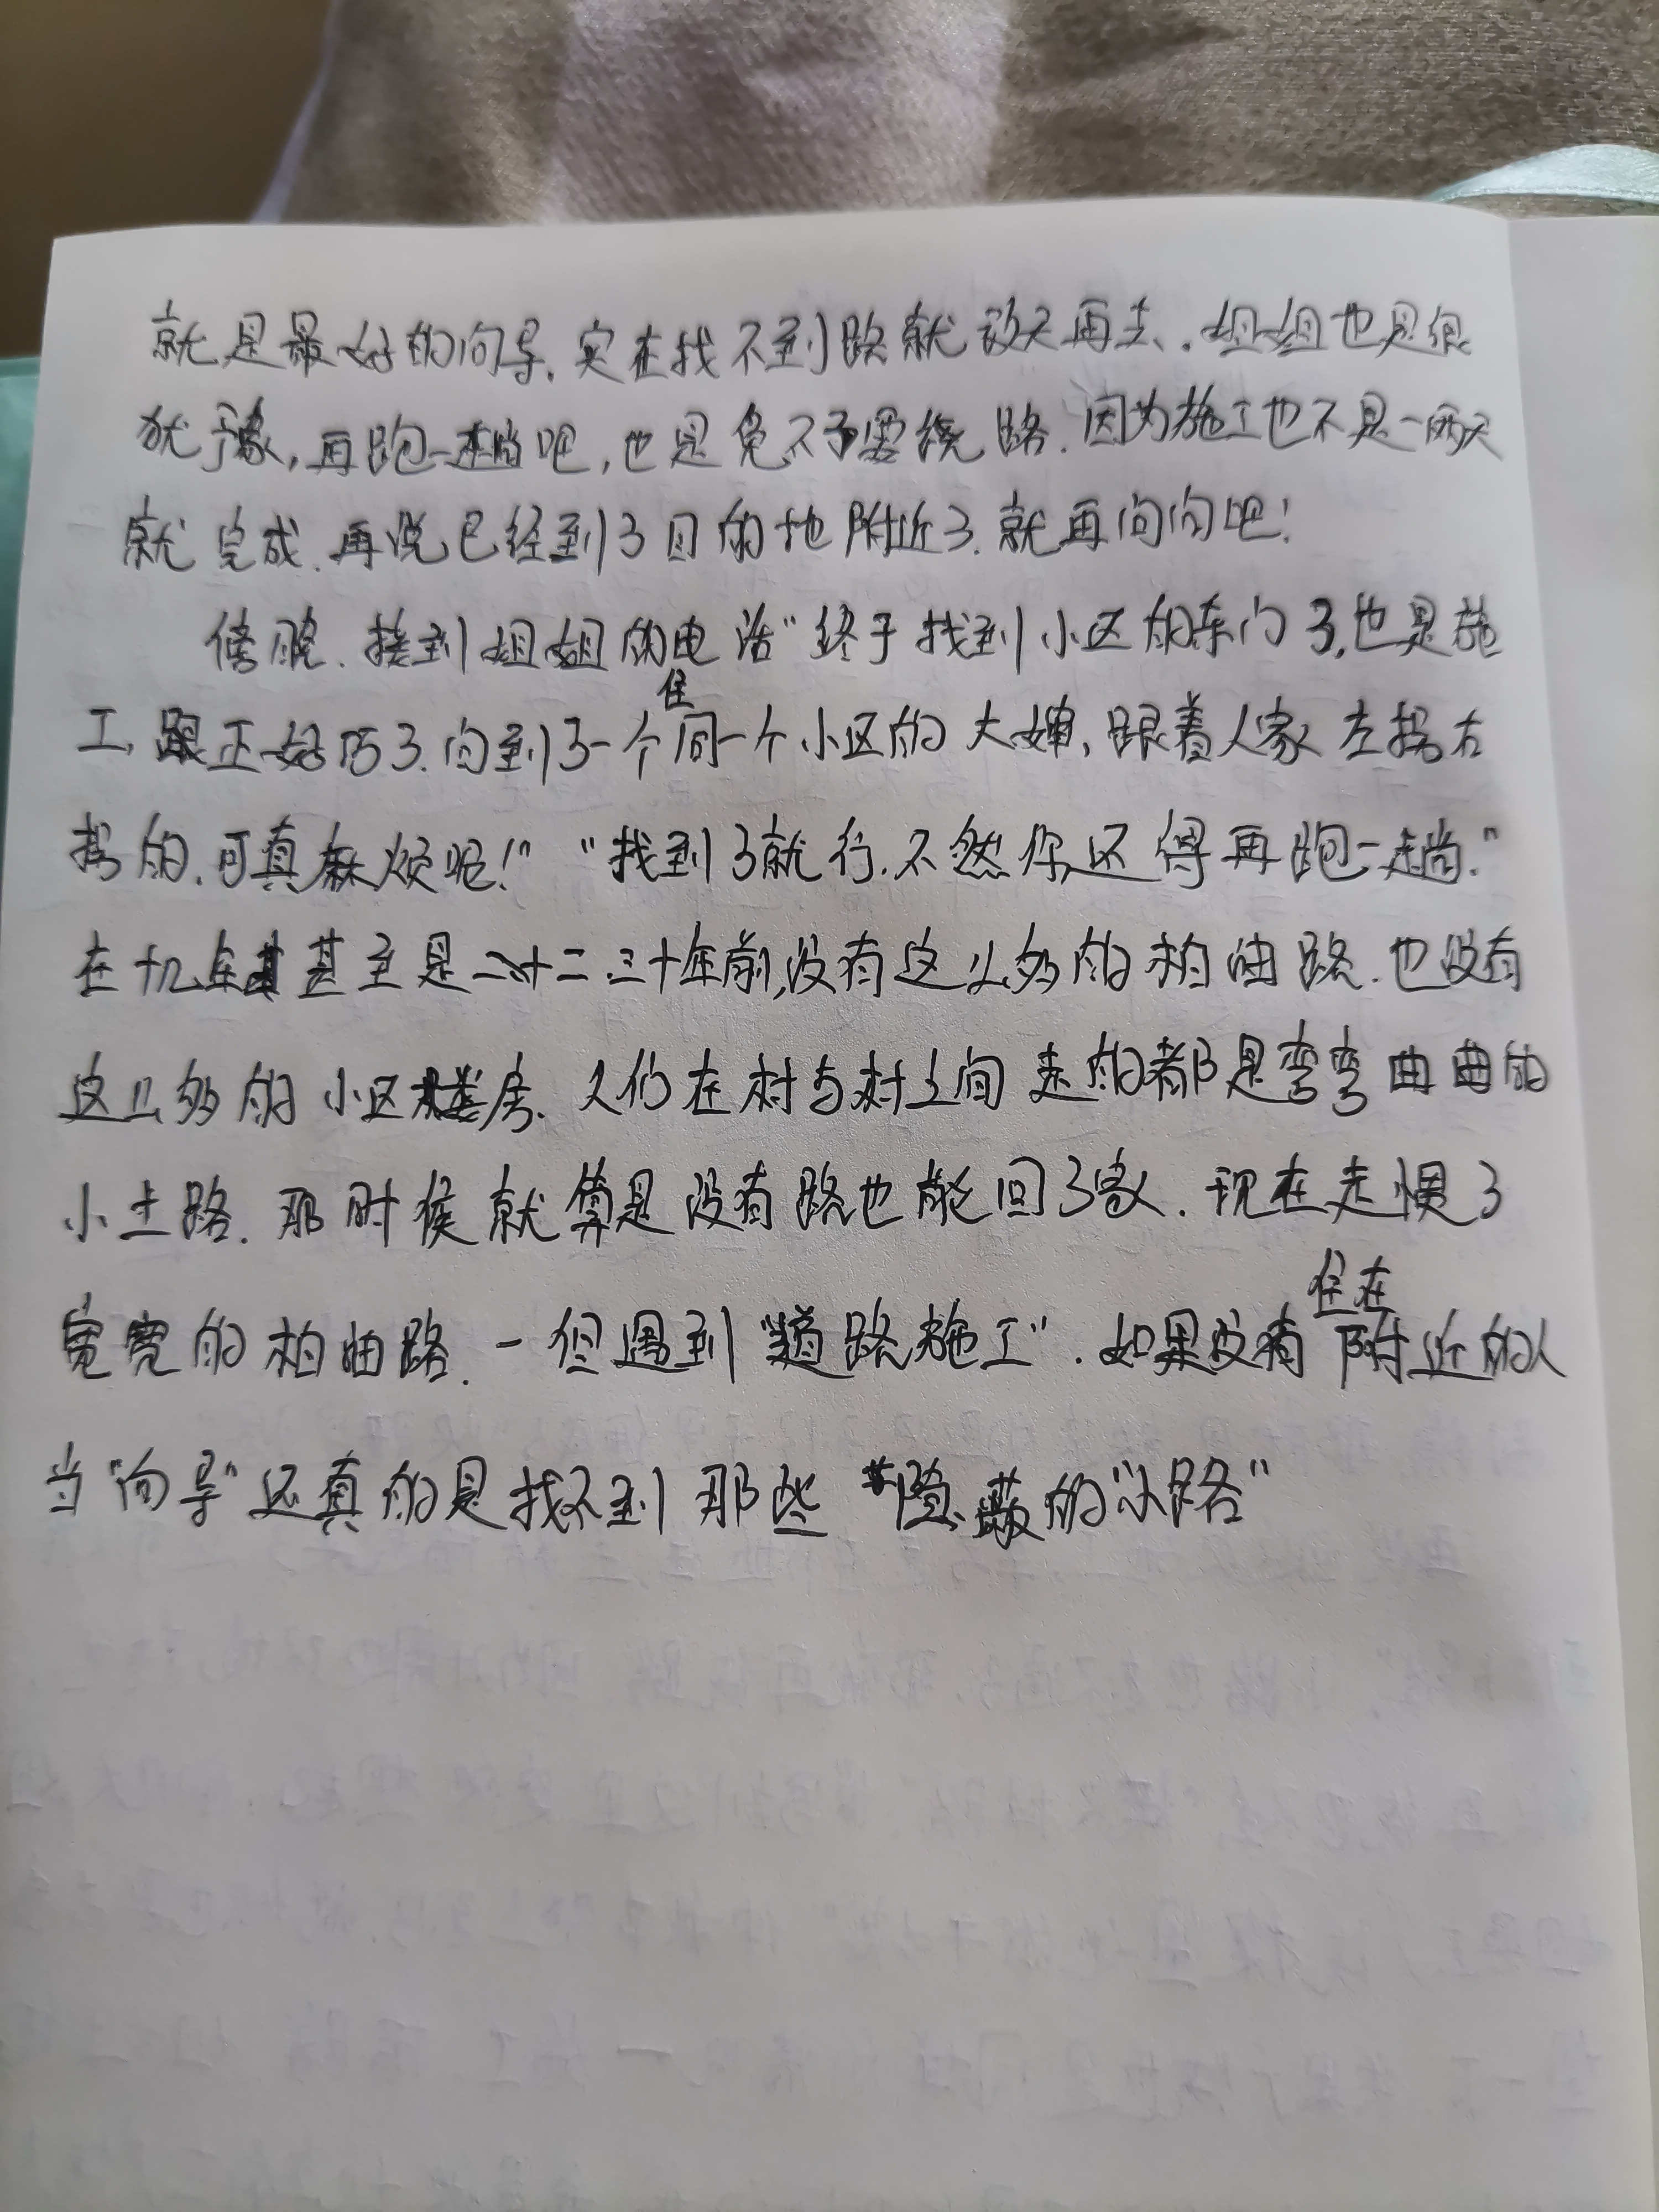 就是最好的向导.实在找不到路就改天再去.姐姐也是很
犹豫,再跑一趟吧,也是免不了要绕路.因为施工也不是一两天
就完成.再说已经到了目的地附近了.就再问问吧!
傍晚.接到姐姐的电话"终于找到小区的东门了,也是施
工,正好巧了.问到了一个住同一个小区的大婶,跟着人家左拐右
拐的.可真麻烦呢!" "找到了就行.不然你还得再跑一趟."
在十几年甚至是二十二.三十年前,没有这么多的柏油路.也没有
这么多的小区楼房.人们在村与村之间走的都是弯弯曲曲的
小土路.那时候就算是没有路也能回了家.现在走惯了
宽宽的柏油路.一但遇到"道路施工".如果没有住在附近的人
当"向导"还真的是找不到那些"隐蔽的"小路"